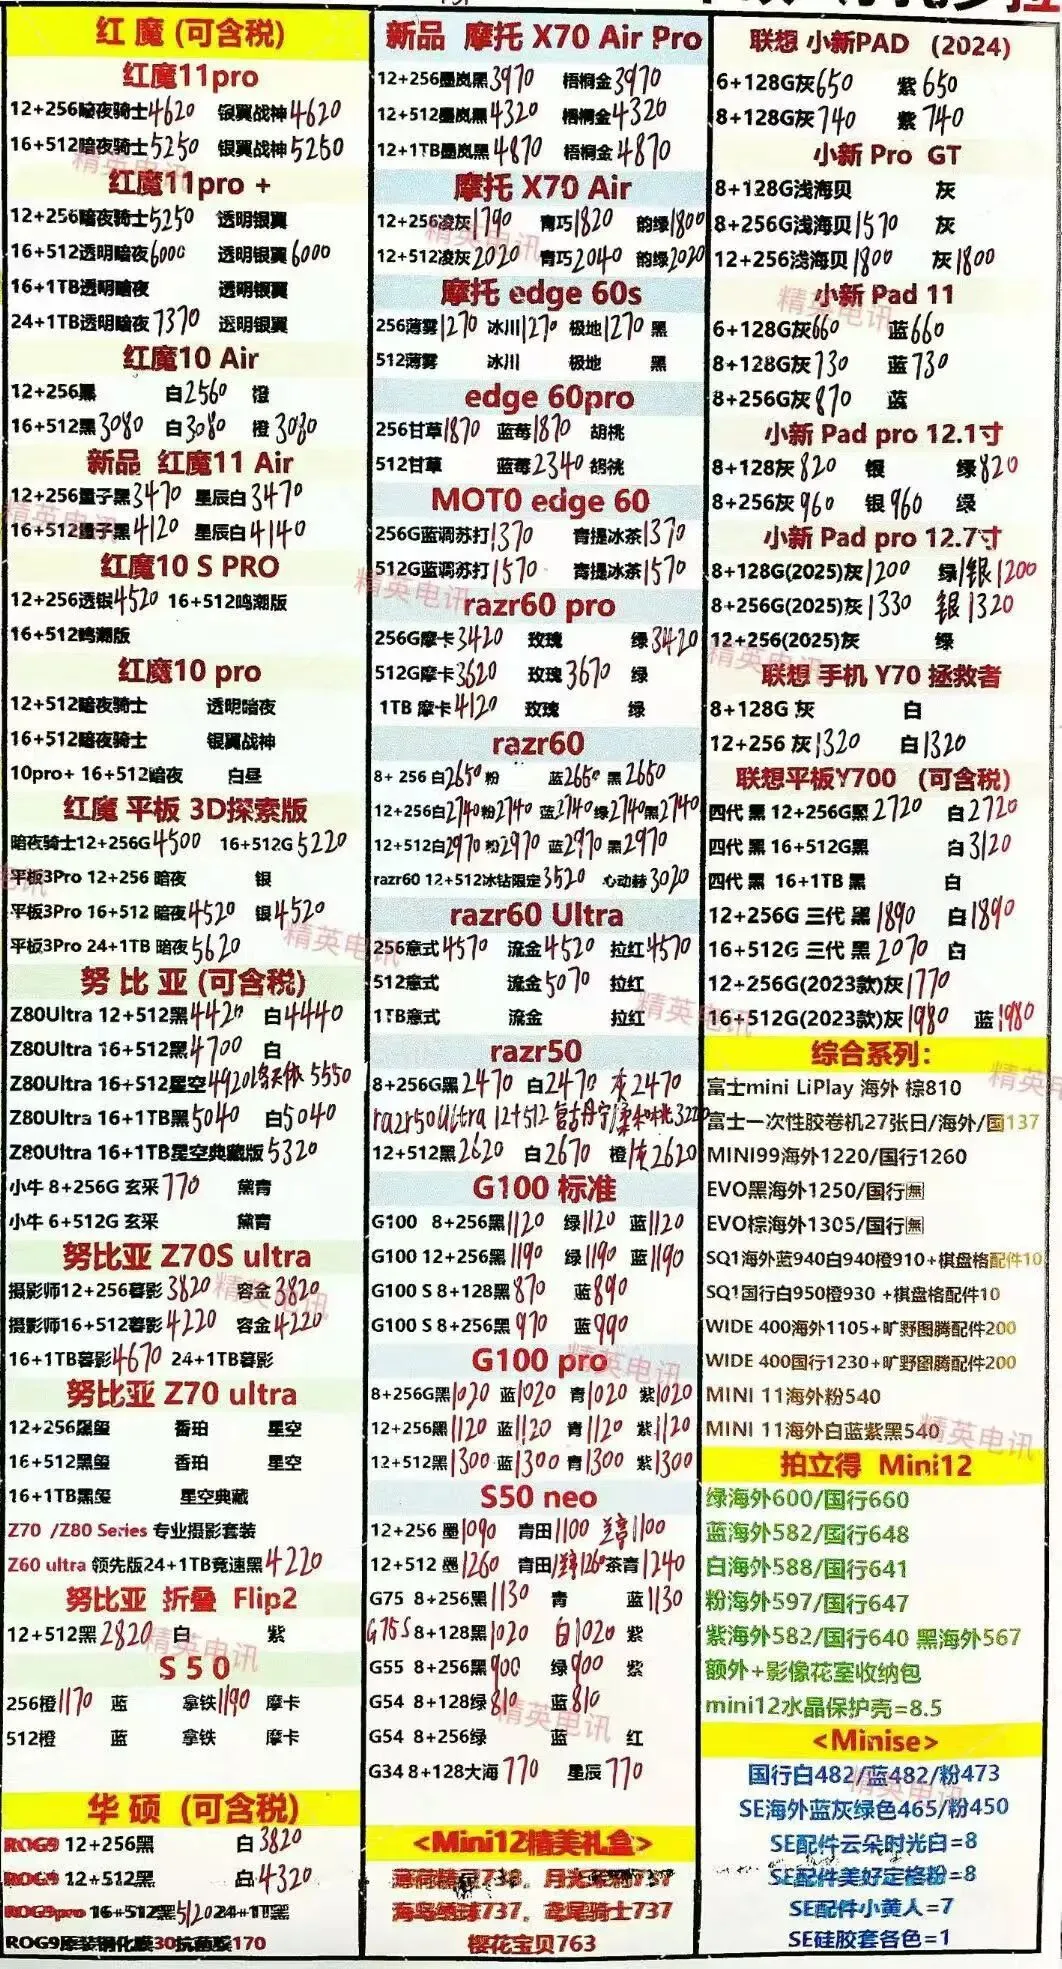 红 魔 (可含税)
红魔11pro
12+256暗夜骑士4620 银翼战神4620
16+512暗夜骑士5250 银翼战神5250
红魔11pro +
12+256暗夜骑士5250 透明银翼
16+512透明暗夜6000 透明银翼6000
16+1TB透明暗夜 透明银翼
24+1TB透明暗夜7370 透明银翼
红魔10 Air
12+256黑 白2560 橙
16+512黑3080 白3080 橙3080
新品 红魔11 Air
12+256量子黑3470 星辰白3470
16+512量子黑4120 星辰白4140
红魔10 S PRO
12+256透银4520 16+512鸣潮版
16+512鸣潮版
红魔10 pro
12+512暗夜骑士 透明暗夜
16+512暗夜骑士 银翼战神
10pro+ 16+512暗夜 白昼
红魔 平板 3D探索版
暗夜骑士12+256G4500 16+512G5220
平板3Pro 12+256 暗夜 银
平板3Pro 16+512 暗夜4520 银4520
平板3Pro 24+1TB 暗夜5620
努 比 亚 (可含税)
Z80Ultra 12+512黑4420 白4440
Z80Ultra 16+512黑4700 白
Z80Ultra 16+512星空4920 5550
Z80Ultra 16+1TB黑5040 白5040
Z80Ultra 16+1TB星空典藏版5320
小牛 8+256G 玄采770 黛青
小牛 6+512G 玄采 黛青
努比亚 Z70S ultra
摄影师12+256暮影3820 容金3820
摄影师16+512暮影4220 容金4220
16+1TB暮影4670 24+1TB暮影
努比亚 Z70 ultra
12+256黑玺 香珀 星空
16+512黑玺 香珀 星空
16+1TB黑玺 星空典藏
Z70 /Z80 Series 专业摄影套装
Z60 ultra 领先版24+1TB竞速黑4220
努比亚 折叠 Flip2
12+512黑2820 白 紫
S 5 0
256橙1170 蓝 拿铁1190 摩卡
512橙 蓝 拿铁 摩卡
华 硕 (可含税)
ROG9 12+256黑 白3820
ROG9 12+512黑 白4320
ROG9pro 16+512黑5120 24+1T黑
ROG9原装钢化膜30抗菌膜170
新品 摩托 X70 Air Pro
12+256墨岚黑3970 梧桐金3970
12+512墨岚黑4320 梧桐金4320
12+1TB墨岚黑4870 梧桐金4870
摩托 X70 Air
12+256凌灰1790 青巧1820 韵绿1800
12+512凌灰2020 青巧2040 韵绿2020
摩托 edge 60s
256薄雾1270 冰川1270 极地1270 黑
512薄雾 冰川 极地 黑
edge 60pro
256甘草1870 蓝莓1870 胡桃
512甘草 蓝莓2340 胡桃
MOT0 edge 60
256G蓝调苏打1370 青提冰茶1370
512G蓝调苏打1570 青提冰茶1570
razr60 pro
256G摩卡3420 玫瑰 绿3420
512G摩卡3620 玫瑰3670 绿
1TB 摩卡4120 玫瑰 绿
razr60
8+ 256 白2650 粉 蓝2660 黑2660
12+256白2740粉2740 蓝2740绿2740黑2740
12+512白2970 粉2970 蓝2970 黑2970
razr60 12+512冰钻限定3520 心动赫3020
razr60 Ultra
256意式4570 流金4520 拉红4570
512意式 流金5070 拉红
1TB意式 流金 拉红
razr50
8+256G黑2470 白2470 灰2470
razr50ultra 12+512 复古丹宁/柔和桃
12+512黑2620 白2670 橙/灰2620
G100 标准
G100 8+256黑1120 绿1120 蓝1120
G100 12+256黑1190 绿1190 蓝1190
G100 S 8+128黑870 蓝890
G100 S 8+256黑970 蓝990
G100 pro
8+256G黑1020 蓝1020 青1020 紫1020
12+256黑1120 蓝1120 青1120 紫1120
12+512黑1300 蓝1300 青1300 紫1300
S50 neo
12+256 墨1090 青田1100 1100
12+512 墨1260 青田 1260茶青1240
G75 8+256黑1130 青 蓝1130
G75S 8+128黑1020 白1020 紫
G55 8+256黑900 绿900 紫
G54 8+128绿810 蓝810
G54 8+256绿 蓝 红
G34 8+128大海770 星辰770
<Mini12精美礼盒>
薄荷精灵738, 月光 737
海岛绣球737, 鸢尾骑士737
樱花宝贝763
联想 小新PAD (2024)
6+128G灰650 紫650
8+128G灰740 紫740
小新 Pro GT
8+128G浅海贝 灰
8+256G浅海贝1570 灰
12+256浅海贝1800 灰1800
小新 Pad 11
6+128G灰660 蓝660
8+128G灰730 蓝730
8+256G灰870 蓝
小新 Pad pro 12.1寸
8+128灰820 银 绿820
8+256灰960 银960 绿
小新 Pad pro 12.7寸
8+128G(2025)灰1200 绿/银1200
8+256G(2025)灰1330 银1320
12+256(2025)灰 绿
联想 手机 Y70 拯救者
8+128G 灰 白
12+256 灰1320 白1320
联想平板Y700 (可含税)
四代 黑 12+256G黑2720 白2720
四代 黑 16+512G黑 白3120
四代 黑 16+1TB 黑 白
12+256G 三代 黑1890 白1890
16+512G 三代 黑2070 白
12+256G(2023款)灰1770
16+512G(2023款)灰1980 蓝1980
综合系列:
富士mini LiPlay 海外 棕810
富士一次性胶卷机27张日/海外/国137
MINI99海外1220/国行1260
EVO黑海外1250/国行無
EVO棕海外1305/国行無
SQ1海外蓝940白940橙910+棋盘格配件10
SQ1国行白950橙930 +棋盘格配件10
WIDE 400海外1105+旷野图腾配件200
WIDE 400国行1230+旷野图腾配件200
MINI 11海外粉540
MINI 11海外白蓝紫黑540
拍立得 Mini12
绿海外600/国行660
蓝海外582/国行648
白海外588/国行641
粉海外597/国行647
紫海外582/国行640 黑海外567
额外+影像花室收纳包
mini12水晶保护壳=8.5
<Minise>
国行白482/蓝482/粉473
SE海外蓝灰绿色465/粉450
SE配件云朵时光白=8
SE配件美好定格粉=8
SE配件小黄人=7
SE硅胶套各色=1
精英电讯